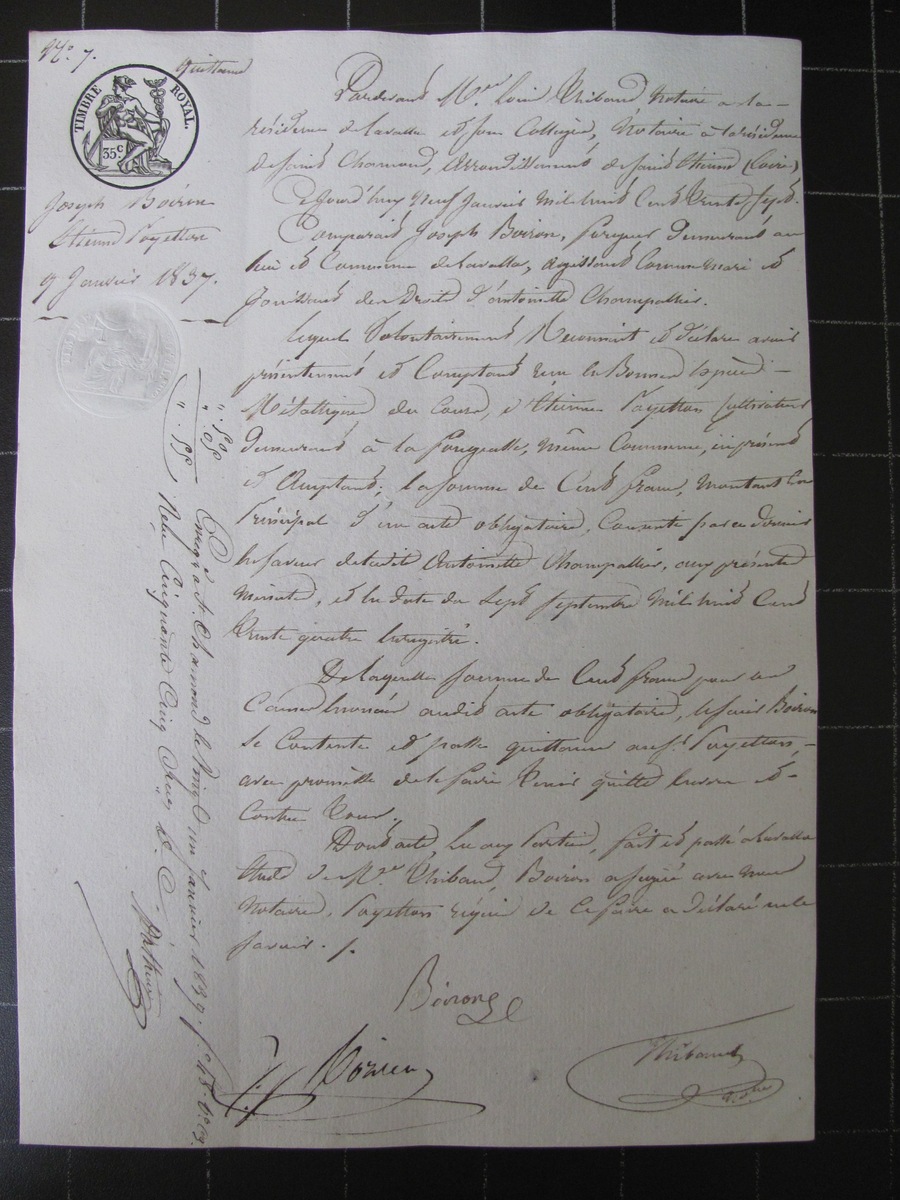 N.° 7.
quittance
TIMBRE ROYAL.
35 c
Joseph Boiron
Etienne Payetton
9 Janvier 1837.
Pardevant M.tre Louis Thibaud Notaire à la
résidence de Lavalla et son Collègue, Notaire à la résidence
de Saint Chamond, Arrondissement de Saint Etienne (Loire)
Cejourd'huy neuf Janvier mil huit Cent Trente Sept.
Comparait Joseph Boiron, forgeur demeurant au
lieu et Commune de Lavalla, agissant Comme Mari et
Jouissant des Droits d'antoinette Champallier.
Lequel Volontairement Reconnait et déclare avoir
présentement et Comptant reçu en Bonnes Espèces
Métalliques du Cours, d'Etienne Payetton Cultivateur
demeurant à la Fougealle, même Commune, ici présent
et acceptant; la somme de Cent francs, montant en
Principal d'un acte obligatoire, Consenti par ce dernier
en faveur de ladite Antoinette Champallier, aux présentes
minutes, et en date du Sept Septembre Mil huit Cent
Trente quatre Enregistré.
De laquelle somme de Cent francs pour les
Causes énoncées audit acte obligatoire, ledit Boiron
se Contente et passe quittance audt Payetton,
avec promesse de le faire Tenir quitte envers et
Contre Tous.
Dont acte, Lu aux Parties, fait et passé a Lavalla
Etude de M.tre Thibaud, Boiron a signé avec nous
Notaires, Payetton requis de le faire a déclaré ne le
savoir. /.
Boiron
Thibaud
N.re
" . 50
" . 05
" . 55
Enreg.é à St Chamond le Vingt un Janvier 1837. f.° 48. C.e 9.
Reçu Cinquante Cinq C.mes D.e C.